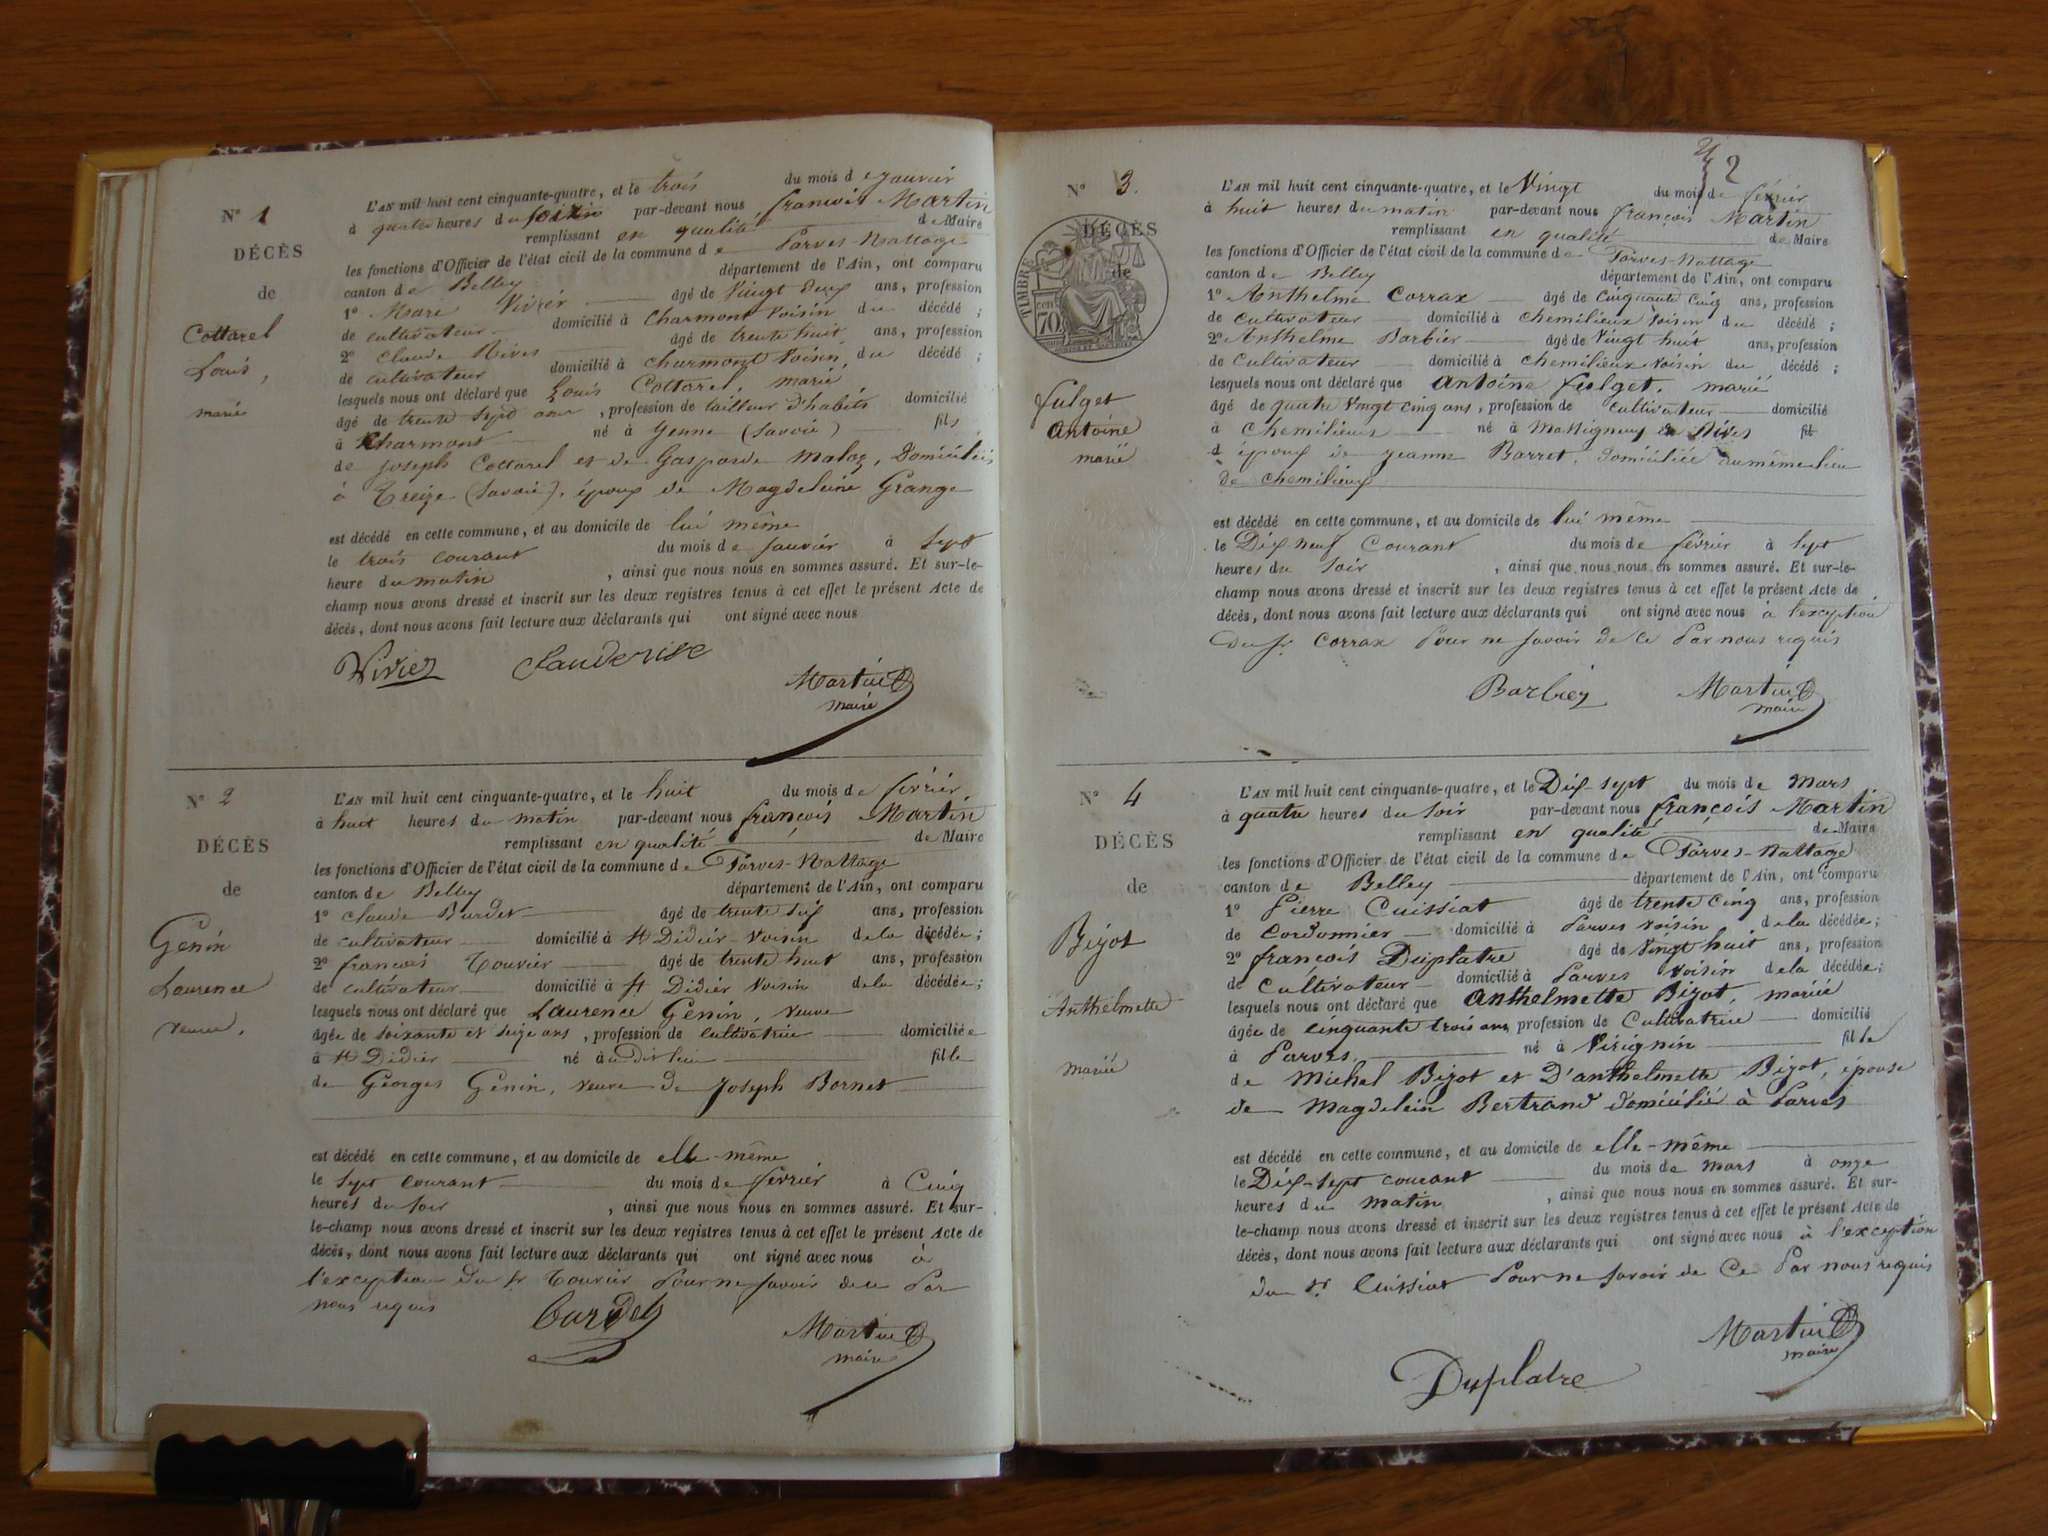 N° 1
DÉCÈS
de
Cottarel
Louis,
marié
L'AN mil huit cent cinquante-quatre, et le trois du mois de janvier
à quatre heures du soir par-devant nous françois Martin
remplissant en qualité de Maire
les fonctions d'Officier de l'état civil de la commune de Parves-Nattage
canton de Belley département de l'Ain, ont comparu
1° Mari Vivier âgé de Vingt deux ans, profession
de cultivateur domicilié à Charmont Voisin du décédé ;
2° Claude Rives âgé de trente huit ans, profession
de cultivateur domicilié à charmont Voisin du décédé ;
lesquels nous ont déclaré que Louis Cottarel, marié
âgé de trente sept ans, profession de tailleur d'habits domicilié
à Charmont né à Yenne (Savoie) fils
de Joseph Cottarel et de Gasparde Maloz, Domiciliés
à Treize (Savoie), époux de Magdeleine Grange
est décédé en cette commune, et au domicile de lui même
le trois courant du mois de Janvier à Sept
heure du matin, ainsi que nous nous en sommes assuré. Et sur-le-
champ nous avons dressé et inscrit sur les deux registres tenus à cet effet le présent Acte de
décès, dont nous avons fait lecture aux déclarants qui ont signé avec nous
Vivier Martin
maire
N° 2
DÉCÈS
de
Genin
Laurence
veuve,
L'AN mil huit cent cinquante-quatre, et le huit du mois de février
à huit heures du matin par-devant nous françois Martin
remplissant en qualité de Maire
les fonctions d'Officier de l'état civil de la commune de Parves-Nattage
canton de Belley département de l'Ain, ont comparu
1° Claude Burdet âgé de trente six ans, profession
de cultivateur domicilié à St Didier Voisin de la décédée ;
2° françois Touvier âgé de trente huit ans, profession
de cultivateur domicilié à St Didier Voisin de la décédée ;
lesquels nous ont déclaré que Laurence Genin, veuve
âgée de soixante et seize ans, profession de cultivatrice domiciliée
à St Didier né au dit lieu fille
de Georges Genin, veuve de Joseph Bornet
est décédé en cette commune, et au domicile de elle-même
le sept courant du mois de février à Cinq
heures du soir, ainsi que nous nous en sommes assuré. Et sur-
le-champ nous avons dressé et inscrit sur les deux registres tenus à cet effet le présent Acte de
décès, dont nous avons fait lecture aux déclarants qui ont signé avec nous à
l'exception du Sr Touvier Pour ne savoir de ce Par
nous requis
Martin
maire
2
N° 3.
DÉCÈS
de
TIMBRE
70
fulget
Antoine
marié
L'AN mil huit cent cinquante-quatre, et le Vingt du mois de février
à huit heures du matin par-devant nous françois Martin
remplissant en qualité de Maire
les fonctions d'Officier de l'état civil de la commune de Parves-Nattage
canton de Belley département de l'Ain, ont comparu
1° Anthelme Corrax âgé de cinquante cinq ans, profession
de cultivateur domicilié à Chemilieux Voisin du décédé ;
2° Anthelme Barbier âgé de Vingt huit ans, profession
de cultivateur domicilié à chemilieux Voisin du décédé ;
lesquels nous ont déclaré que Antoine fulget, marié
âgé de quatre Vingt cinq ans, profession de cultivateur domicilié
à Chemilieux né à fil
d époux de Jeanne Barret, domiciliée au même lieu
de chemilieux
est décédé en cette commune, et au domicile de lui même
le Dix neuf Courant du mois de février à Sept
heures du soir, ainsi que nous nous en sommes assuré. Et sur-le-
champ nous avons dressé et inscrit sur les deux registres tenus à cet effet le présent Acte de
décès, dont nous avons fait lecture aux déclarants qui ont signé avec nous à l'exception
du Sr Corrax Pour ne savoir de ce Par nous requis
Barbier Martin
maire
N° 4
DÉCÈS
de
Bizot
Anthelmette
mariée
L'AN mil huit cent cinquante-quatre, et le Dix-sept du mois de Mars
à quatre heures du Soir par-devant nous françois Martin
remplissant en qualité de Maire
les fonctions d'Officier de l'état civil de la commune de Parves-Nattage
canton de Belley département de l'Ain, ont comparu
1° Pierre Cuissiat âgé de trente cinq ans, profession
de Cordonnier domicilié à Parves voisin de la décédée ;
2° françois Duplatre âgé de Vingt huit ans, profession
de Cultivateur domicilié à Parves Voisin de la décédée ;
lesquels nous ont déclaré que Anthelmette Bizot, mariée
âgée de cinquante trois ans profession de Cultivatrice domicilié
à Parves né à Virignin fille
de Michel Bizot et D'anthelmette Bizot, épouse
de Magdelein Bertrand domicilié à Parves
est décédé en cette commune, et au domicile de elle-même
le Dix-sept courant du mois de mars à onze
heures du matin, ainsi que nous nous en sommes assuré. Et sur-
le-champ nous avons dressé et inscrit sur les deux registres tenus à cet effet le présent Acte de
décès, dont nous avons fait lecture aux déclarants qui ont signé avec nous à l'exception
du Sr Cuissiat Pour ne savoir de ce Par nous requis
Martin
maire
Duplatre